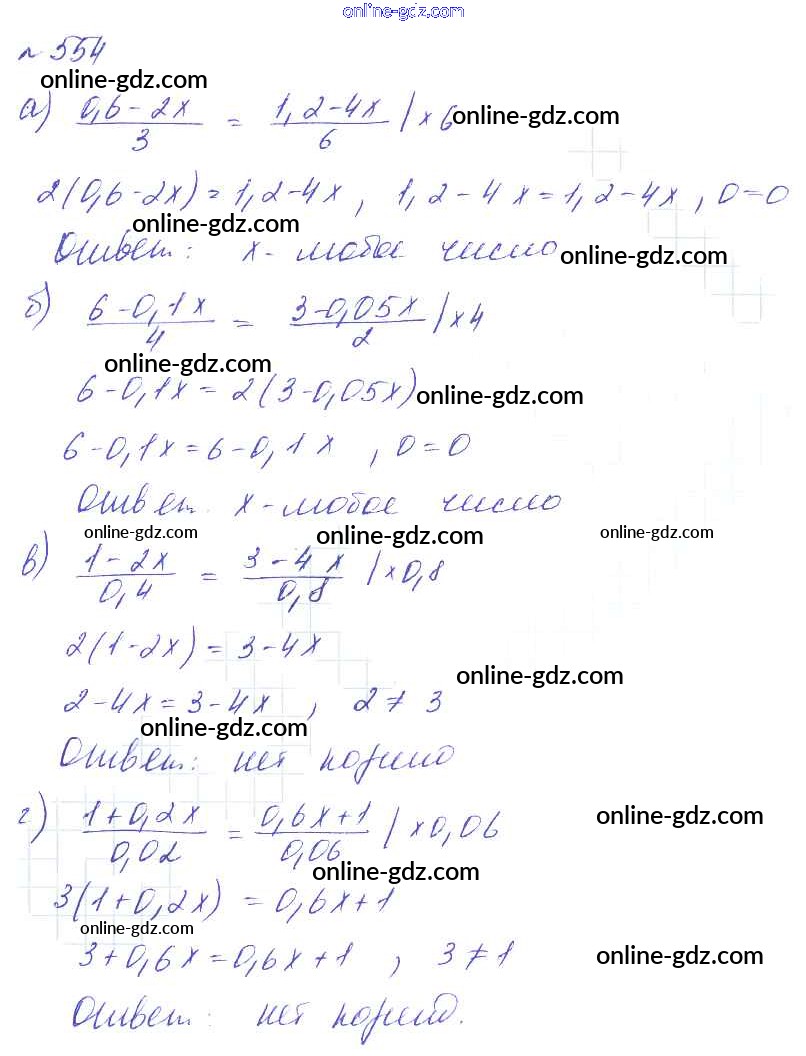 online-gdz.com
№ 554
online-gdz.com
а) (0,6-2x)/3 = (1,2-4x)/6 | × 6 online-gdz.com
2(0,6-2x) = 1,2-4x, 1,2-4x=1,2-4x, 0=0
online-gdz.com
Ответ: x - любое число online-gdz.com
б) (6-0,1x)/4 = (3-0,05x)/2 | × 4
online-gdz.com
6-0,1x = 2(3-0,05x) online-gdz.com
6-0,1x=6-0,1x, 0=0
Ответ. x - любое число
online-gdz.com online-gdz.com online-gdz.com
в) (1-2x)/0,4 = (3-4x)/0,8 | × 0,8
2(1-2x) = 3-4x
online-gdz.com
2-4x=3-4x, 2≠3
online-gdz.com
Ответ: нет корней
г) (1+0,2x)/0,02 = (0,6x+1)/0,06 | × 0,06 online-gdz.com
online-gdz.com
3(1+0,2x) = 0,6x+1
online-gdz.com
3+0,6x=0,6x+1, 3≠1 online-gdz.com
Ответ: нет корней.